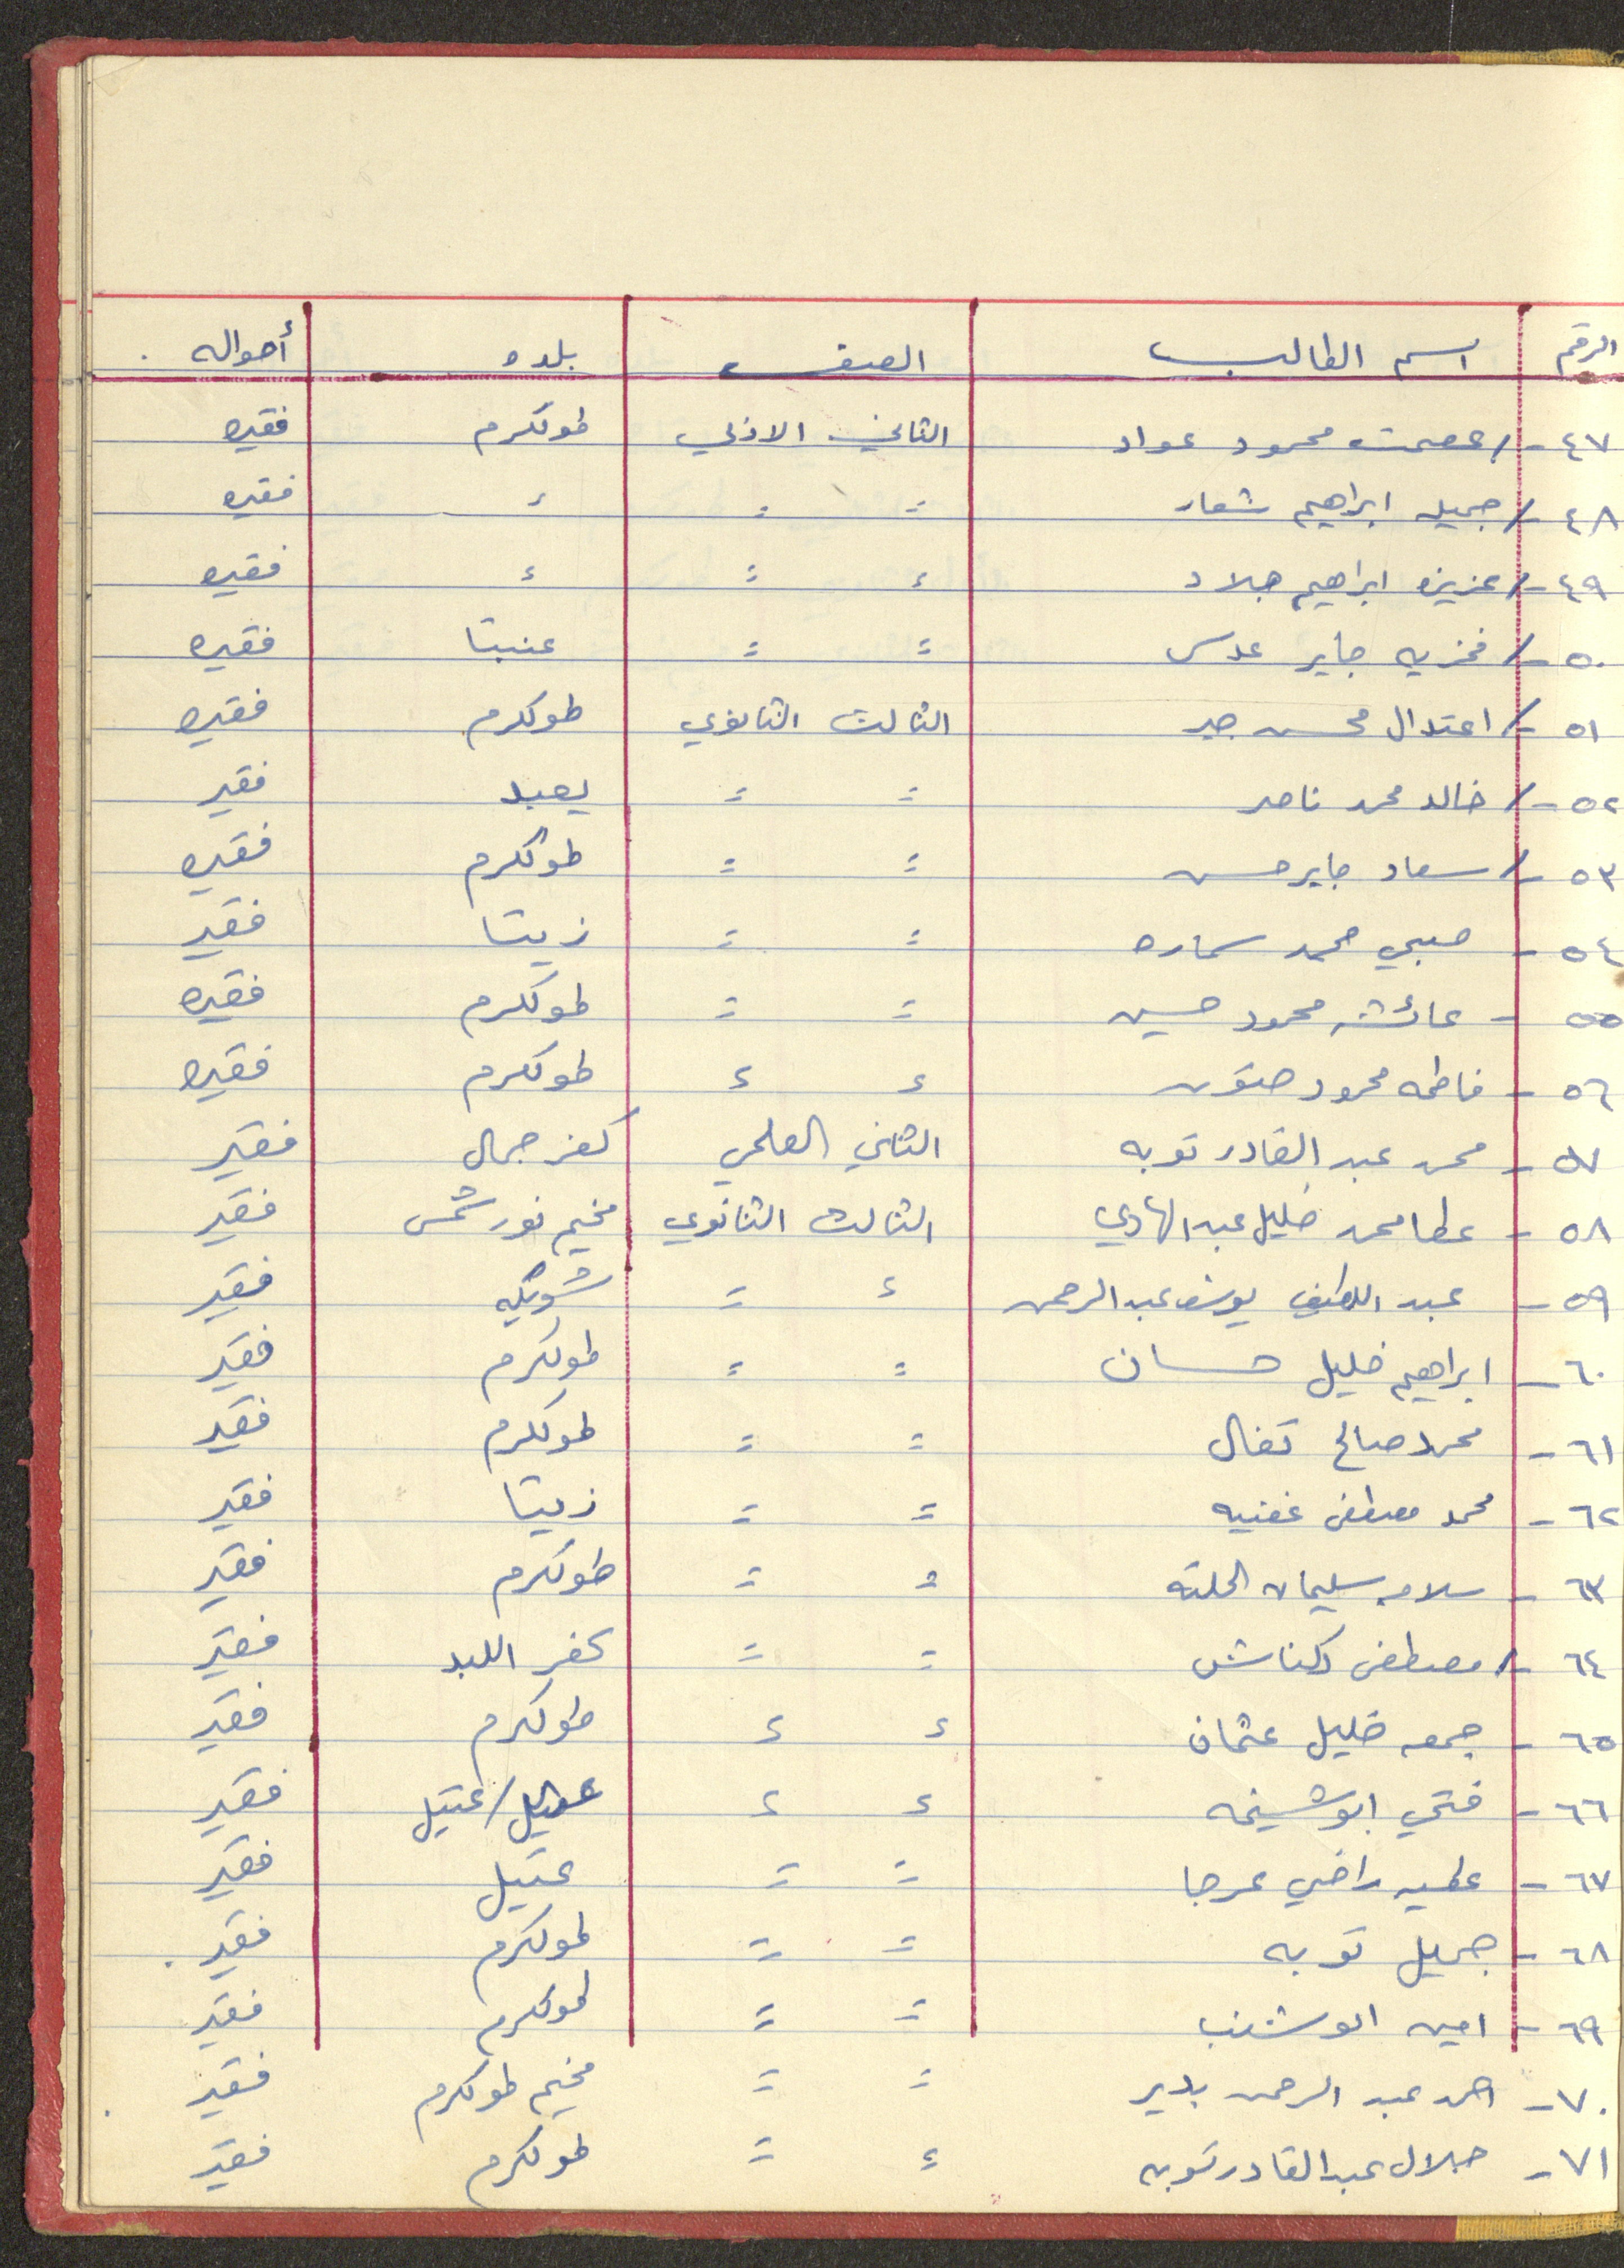 الرقم اسم الطالب الصف بلده أحواله
٤٧ - / عصمت محمود عواد الثاني الادبي طولكرم فقيره
٤٨ - / جميله ابراهيم شعار = = = فقيره
٤٩ - / عزيزه ابراهيم جلاد = = = فقيره
٥٠ - / فخريه جابر عدس = = عنبتا فقيره
٥١ - / اعتدال محسن جبر الثالث الثانوي طولكرم فقيره
٥٢ - / خالد محمد ناصر = = يعبد فقير
٥٣ - / سعاد جابر حسن = = طولكرم فقيره
٥٤ - صبحي محمد سماره = = زيتا فقير
٥٥ - عائشه محمود حسين = = طولكرم فقيره
٥٦ - فاطمه محمود = = طولكرم فقيره
٥٧ - محمد عبد القادر توبه الثاني العلمي كفر جمال فقير
٥٨ - عطا محمد خليل عبد الهادي الثالث الثانوي مخيم نور شمس فقير
٥٩ - عبد اللطيف يوسف عبد الرحمن = = شويكه فقير
٦٠ - ابراهيم خليل حسان = = طولكرم فقير
٦١ - محمد صالح تفال = = طولكرم فقير
٦٢ - محمد مصطفى = = زيتا فقير
٦٣ - سلامه سليمان = = طولكرم فقير
٦٤ - / مصطفى دكناش = = كفر اللبد فقير
٦٥ - جمعه خليل عثمان = = طولكرم فقير
٦٦ - فتحي ابو شيخه = = / عتيل فقير
٦٧ - عطيه راضي عرجا = = عتيل فقير
٦٨ - جميل توبه = = طولكرم فقير .
٦٩ - امين ابو شنب = = طولكرم فقير
٧٠ - احمد عبد الرحمن بدير = = مخيم طولكرم فقير
٧١ - جلال عبد القادر توبه = = طولكرم فقير